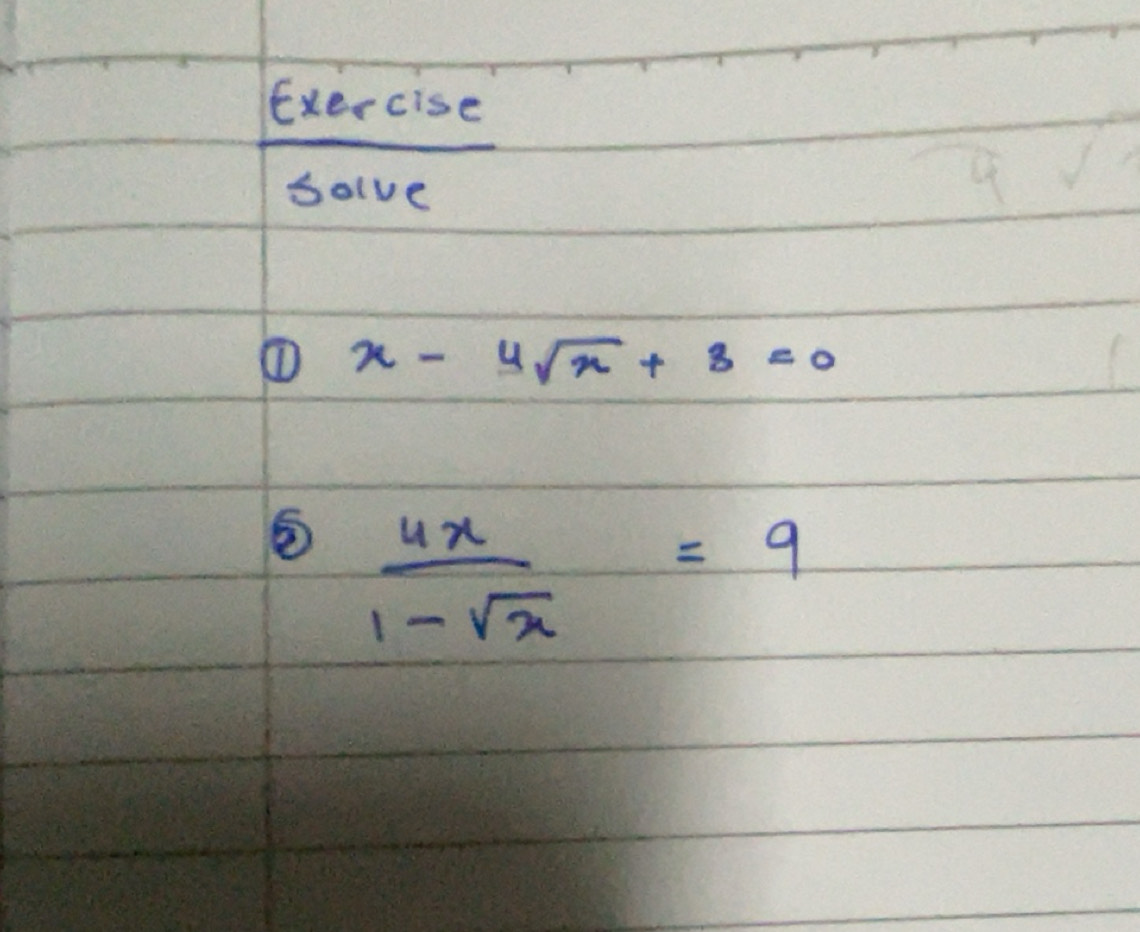 Exercise
Solve
① x - 4√x + 3 = 0
② 4x / 1 - √x = 9